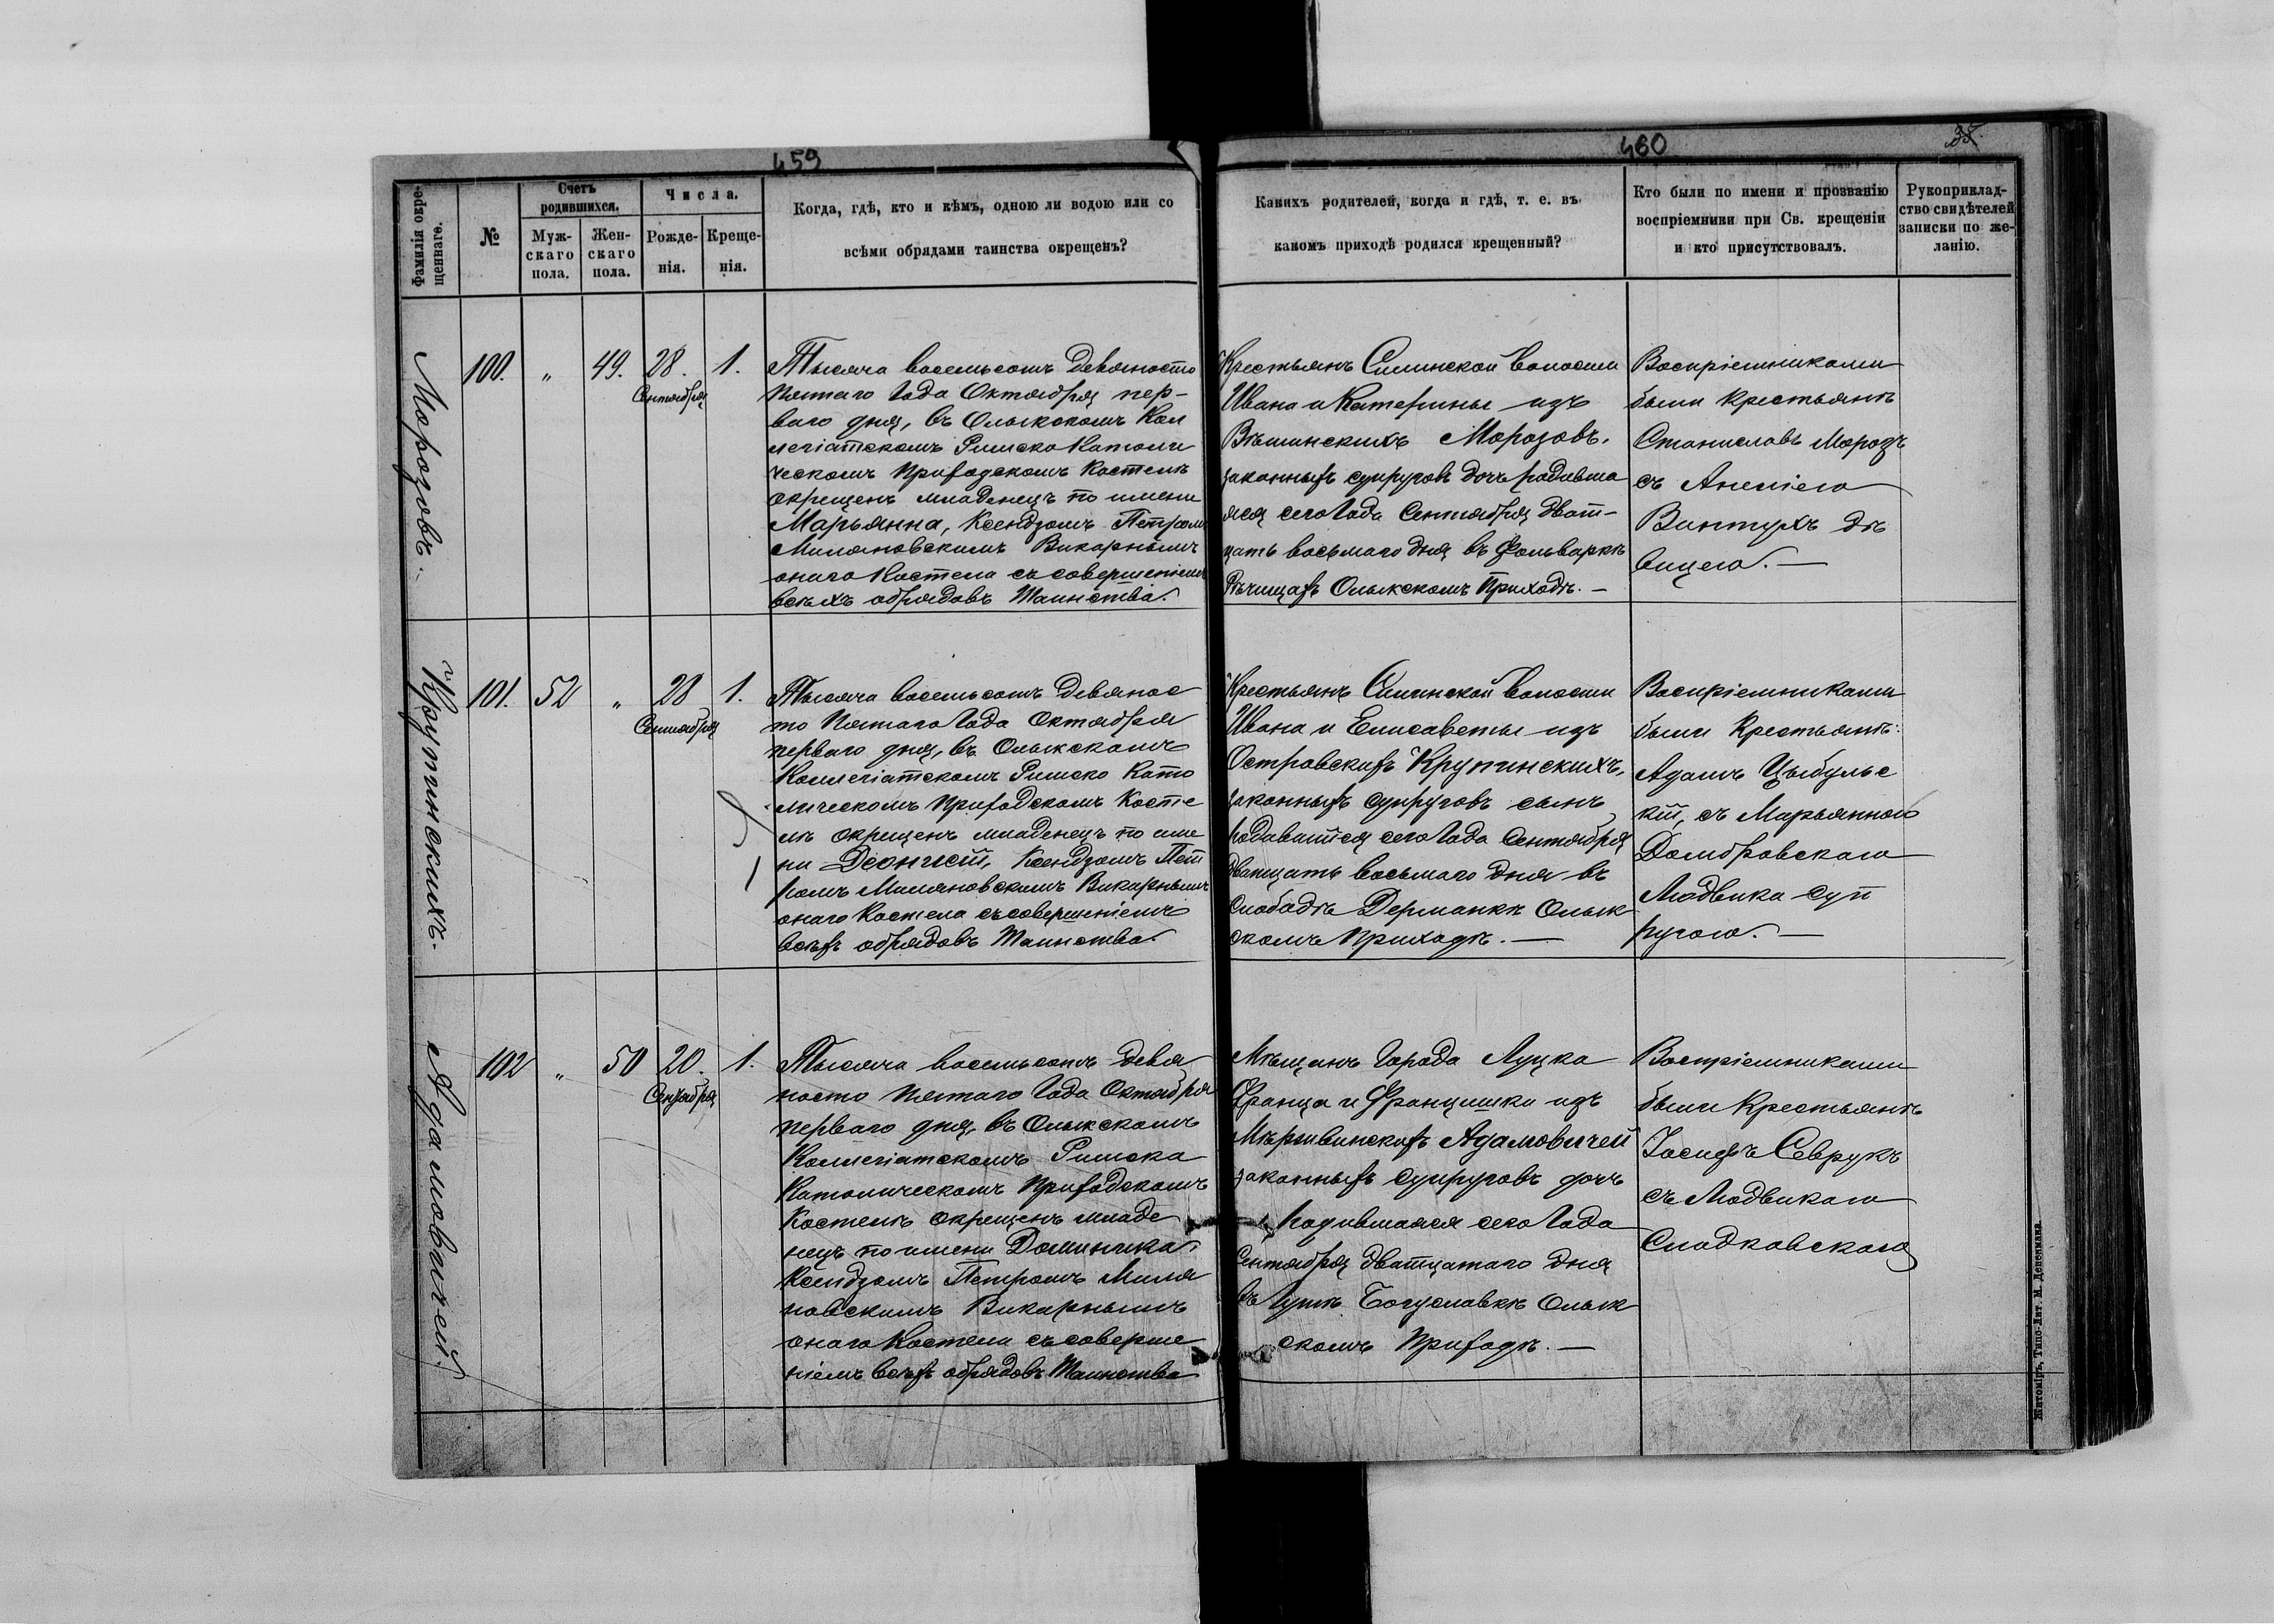 459
Фамилія окре-
щеннаго.
№
Счетъ
родившихся.
Муж-
скаго
пола.
Жен-
скаго
пола.
Числа.
Рожде-
нія.
Креще-
нія.
Когда, гдѣ, кто и кѣмъ, одною ли водою или со
всѣми обрядами таинства окрещенъ?
460
Какихъ родителей, когда и гдѣ, т. е. въ
какомъ приходѣ родился крещенный?
Кто были по имени и прозванію
воспріемники при Св. крещеніи
и кто присутствовалъ.
Рукоприклад-
ство свидѣтелей
записки по же-
ланію.
Морозовъ.
100.
"
49.
28.
Сентября
1.
Тысяча восемьсотъ девяносто
пятаго года Октября пер-
ваго дня, въ Олыкскомъ Кол
легіатскомъ Римско Католи
ческомъ приходскомъ костелѣ
окрещенъ младенецъ по имени
Марьянна, Ксендзомъ Петромъ
Миляновскимъ Викарнымъ
онаго Костела съ совершеніемъ
всѣхъ обрядовъ Таинства.
Крестьянъ Силинской волости
Ивана и Катерины изъ
Морозовъ,
законныхъ супруговъ дочь родивша
яся сего года Сентября двад-
цать восьмаго дня въ Фольваркѣ
Рѣчищахъ Олыкскомъ Приходѣ. —
Воспріемниками
были крестьяне
Станиславъ Морозъ
съ Анеліею
Винтухъ дѣ
вицею. —
Крупинскихъ.
101.
52
"
28
Сентября
1.
Тысяча восемьсотъ девянос
то пятаго года Октября
перваго дня, въ Олыкскомъ
Коллегіатскомъ Римско Като
лическомъ приходскомъ Косте
лѣ окрещенъ младенецъ по име
ни Діонисій, Ксендзомъ Пет
ромъ Миляновскимъ Викарнымъ
онаго Костела съ совершеніемъ
всѣхъ обрядовъ Таинства.
Крестьянъ Силинской волости
Ивана и Елисаветы изъ
Островскихъ Крупинскихъ,
законныхъ супруговъ сынъ
родившійся сего года Сентября
двадцать восьмаго дня въ
Слободѣ Дерманкѣ Олык
скомъ приходѣ. —
Воспріемниками
были Крестьяне:
Адамъ Цыбульс
кій, съ Марьянною
Домбровскаго
Людвика суп
ругою. —
Адамовичей.
102
"
50
20.
Сентября
1.
Тысяча восемьсотъ девя
носто пятаго года Октября
перваго дня, въ Олыкскомъ
Коллегіатскомъ Римско
Католическомъ приходскомъ
Костелѣ окрещенъ младе
нецъ по имени Доминика,
Ксендзомъ Петромъ Миля
новскимъ Викарнымъ
онаго Костела съ соверше
ніемъ всѣхъ обрядовъ Таинства
Мѣщанъ Города Луцка
Франца и Францишки изъ
Адамовичей
законныхъ супруговъ дочь
родившаяся сего года
Сентября двадцатаго дня
въ Богуславкѣ Олык
скомъ приходѣ. —
Воспріемниками
были Крестьяне
Іосифъ Саврукъ
съ Людвикою
Сладковскаго
Житоміръ, Типо-Лит. М. Дененмана